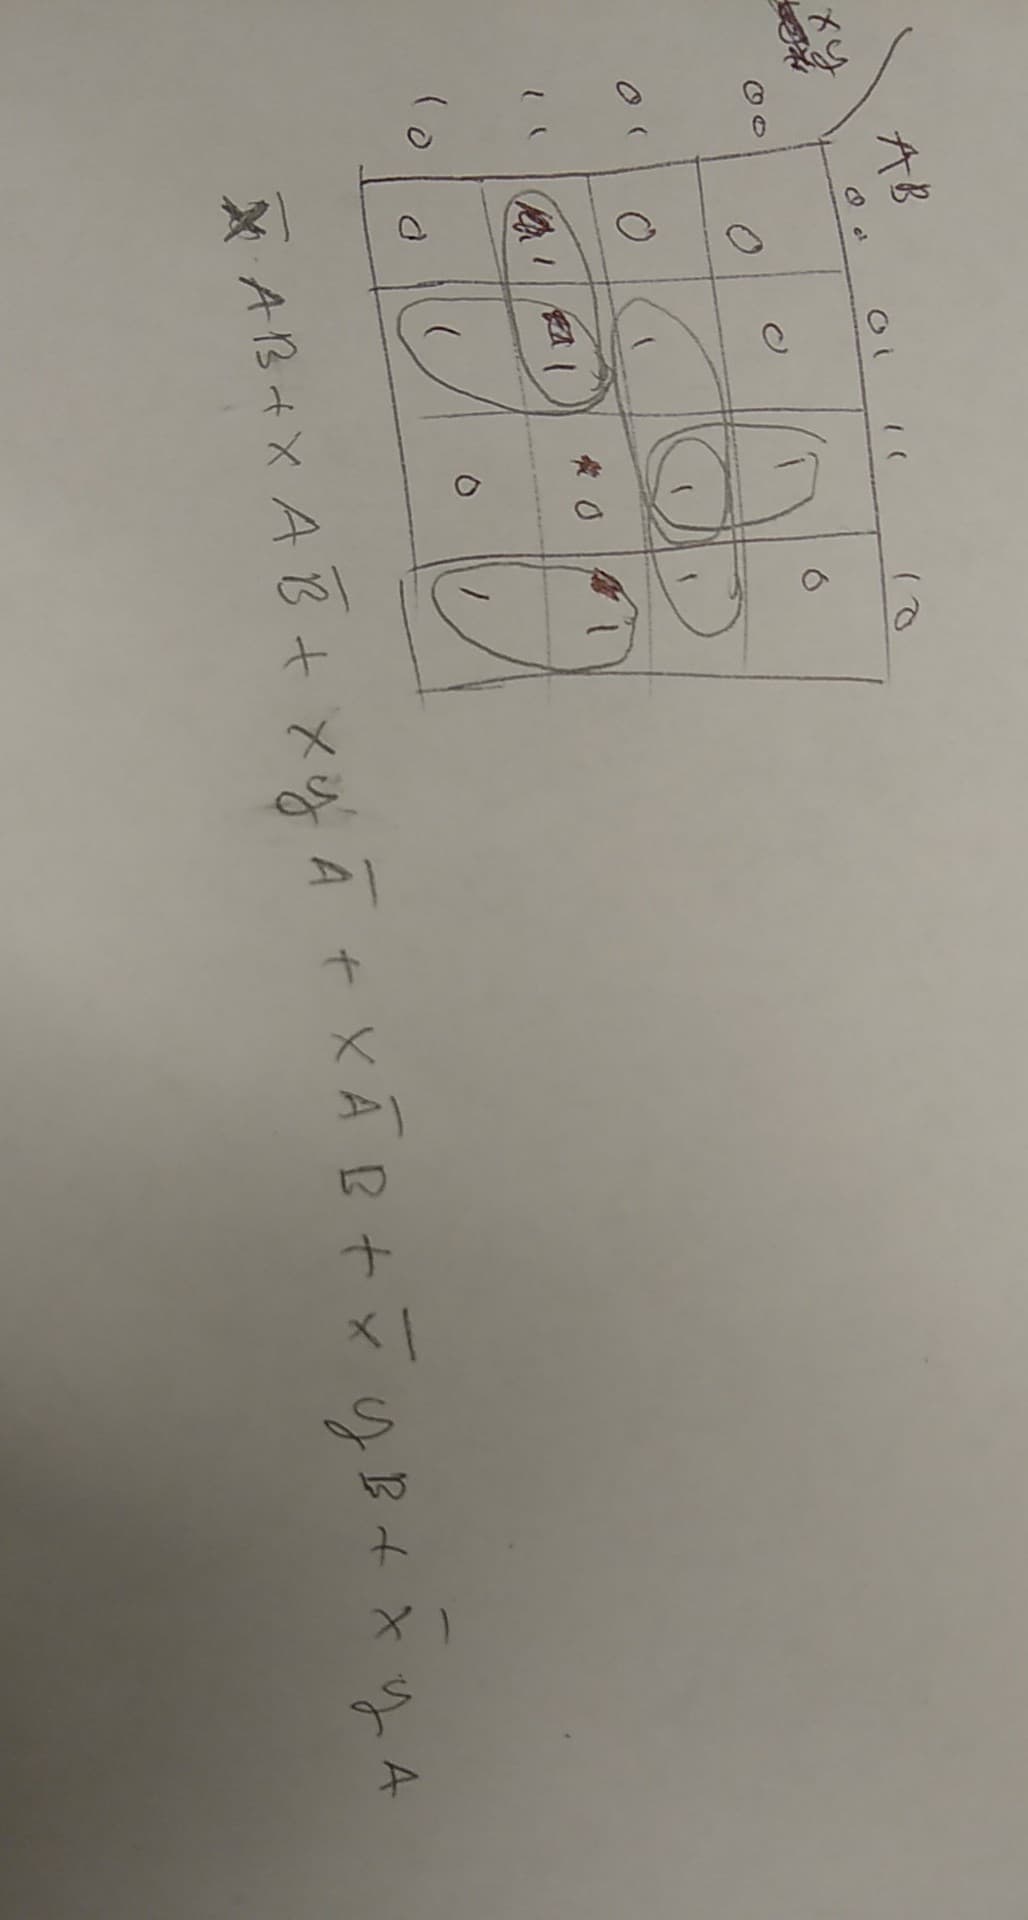 AB
xy 00 01 11 10
00 0 0 1 0
01 0 1 1 1
11 1 1 0 1
10 0 1 0 1
x̅ AB + x A B̅ + xy A̅ + x A̅ B + x̅ y B + x̅ y A